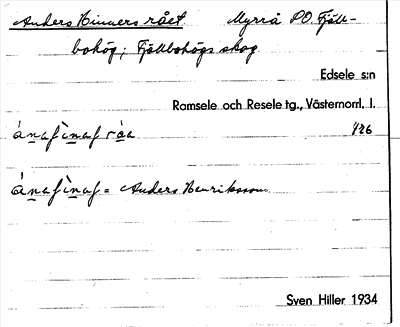 Anders Hinners rået Myrrå PO. Fjäll-
bohög; Fjällbohögs skog
Edsele s:n
Ramsele och Resele tg., Västernorrl. l.
råa 426
= Anders Henriksson
Sven Hiller 1934